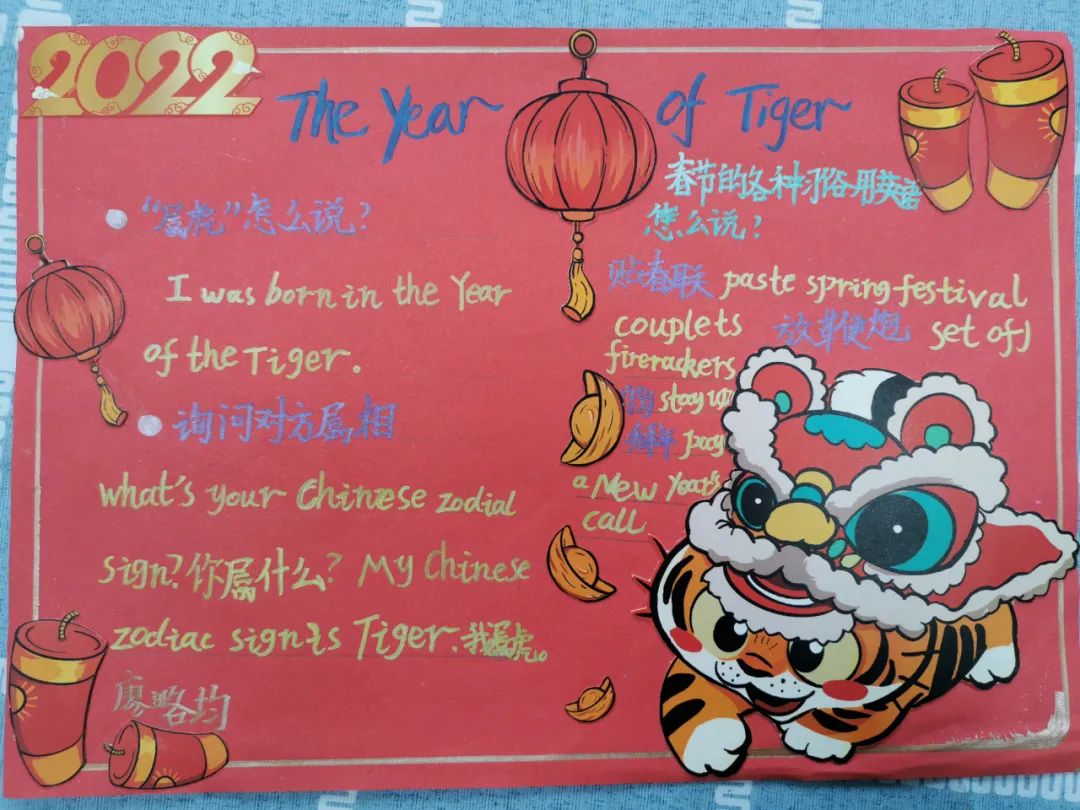 2022
The Year of Tiger
"属虎"怎么说？
I was born in the Year
of the Tiger.
询问对方属相
what's your Chinese zodial
sign?你属什么? My Chinese
zodiac sign is Tiger.我属虎。
廖路均
春节的各种习俗用英语
怎么说？
贴春联 paste spring festival
couplets 放鞭炮 set off
firerackers
stay up
拜年 pay
a New Year's
call